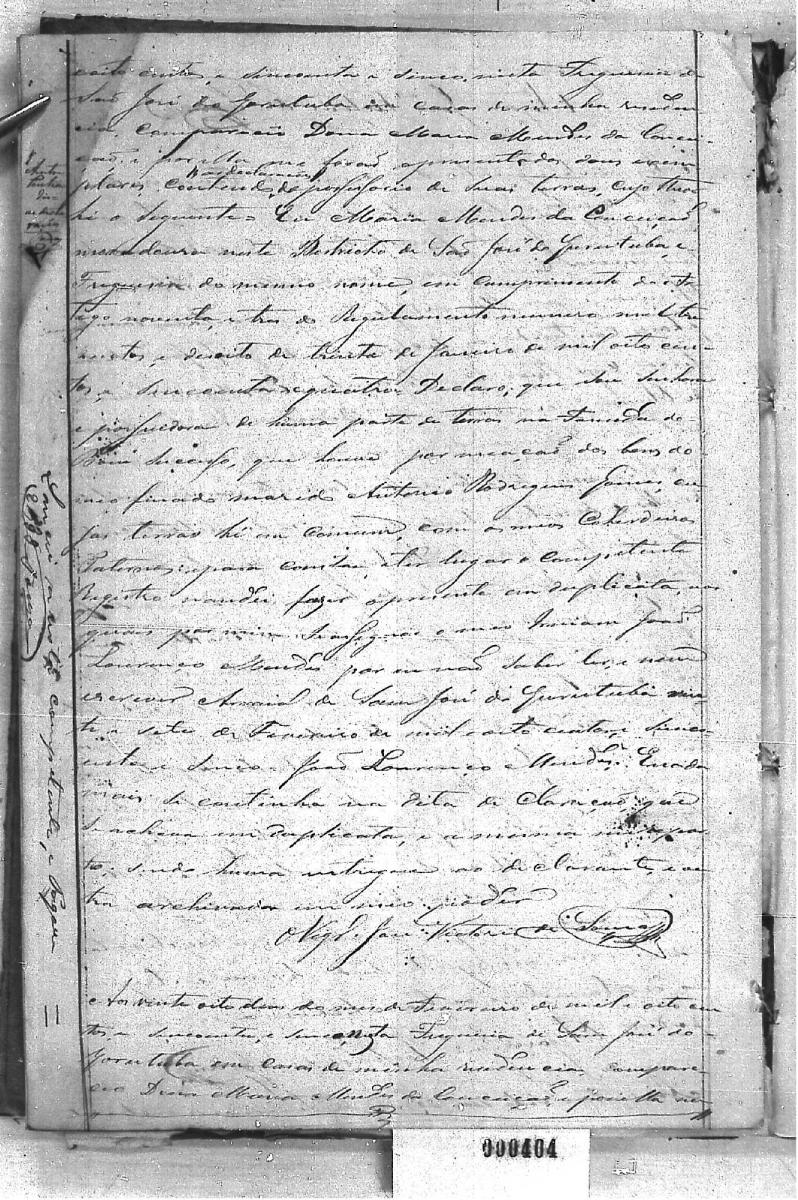 oito centos, e sincoenta e sinco, nesta Freguesia de
São José do Gorutuba em casa de minha residen-
cia, compareceo Dona Maria Mendes da Concei-
ção, e por ella me forão apresentados dous exem-
plares contendo as declarações de possessorio de suas terras, cujo theor
hé o seguinte = Eu Maria Mendes da Conceição
moradoura neste Destricto de São José do Gurutuba, e
Freguesia do mesmo nome, em comprimento do ar-
tigo noventa, e tres do Regulamento numero mil tre-
zentos, e desoito de trinta de Janeiro de mil oito cen-
tos, e sincoenta e quatro Declaro, que sou senhora
e possuedora de huma parte de terras na Fazenda do
Bom Sucesso, que houve por meação dos bens do
meo finado marido Antonio Rodrigues Gomes, cu-
jas terras hé em comum, com os meos Coherdeiros
para constar, e ter lugar o competente
Registro mandei fazer o presente em duplicata, nos
quaes por mim se assignou o meo Irmão João
Lourenço Mendes por eu não saber ler, e nem
escrever Arraial de Sam José do Gurutuba vin-
te, e sete de Fevereiro de mil oito centos, e sinco-
enta e sinco. João Lourenço Mendes. E nada
mais se continha na dita declaração, que
se achava em duplicata, e a mesma
sendo huma entregue ao declarante, e ou-
tra archivada em meo poder
O Vigº. José Victorio de Souza
Aos vinte oito dias do mes de Fevereiro de mil e oito cen-
tos, e sincoenta, e sinco, nesta Freguesia de Sam José do
Gorutuba em casas de minha residencia, compare-
ceo Dona Maria Mendes da Conceição, e por ella me
competente, e
000404